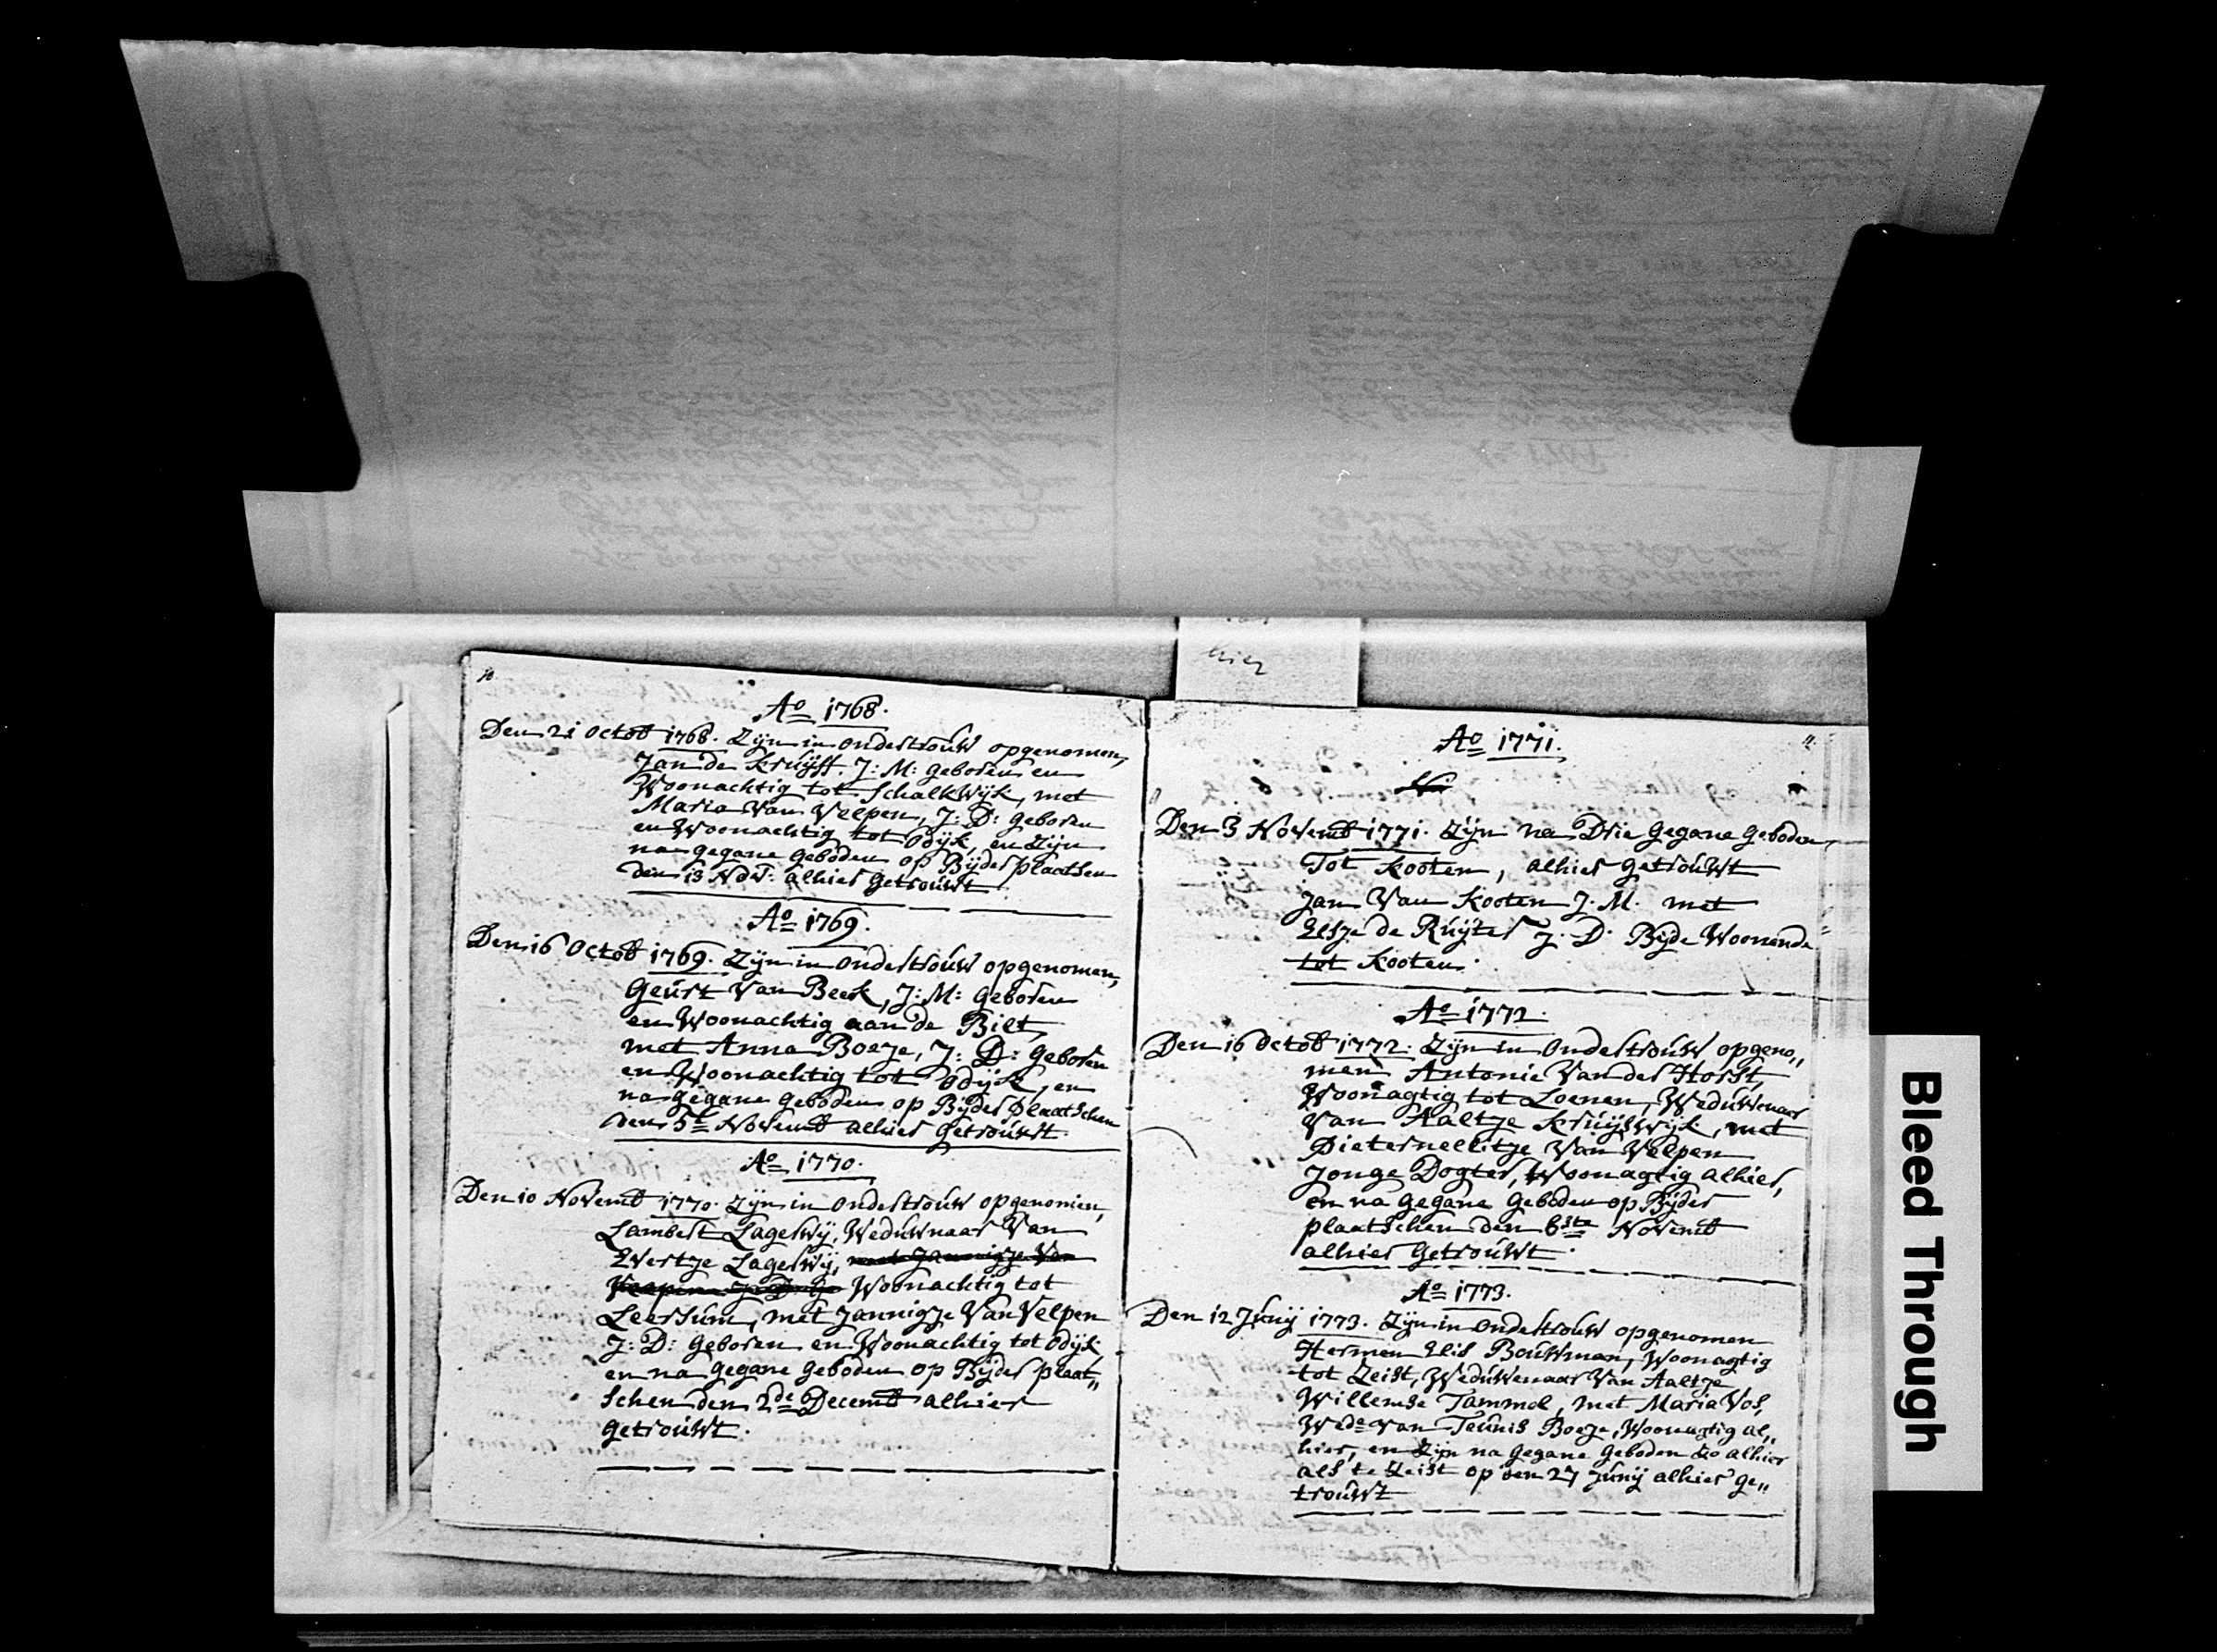 hier
10
Ao 1768.
Den 21 Octob 1768. Zijn in ondertrouw opgenomen,
Jan de Kruijff. J: M: geboren en
Woonachtig tot Schalkwijk, met
Maria Van Velpen, J: D: geboren
en Woonachtig tot Odijk, en zijn
na gegane geboden op Bijder plaatsen
den 13 Nov: alhier getrouwt.
Ao 1769.
Den 16 Octob 1769. Zijn in ondertrouw opgenomen,
Geurt Van Beek, J: M: geboren
en Woonachtig aan de Bilt,
met Anna Boeje, J: D: geboren
en Woonachtig tot Odijk, en
na gegane geboden op Bijder plaatschen
den 5e Novemb alhier getrouwt.
Ao 1770.
Den 10 Novemb 1770. Zijn in ondertrouw opgenomen,
Lambert Lagerwij, Weduwnaar Van
Evertje Lagerwij, met Jannigje Van
Velpen J: D: ge Woonachtig tot
Leersum, met Jannigje Van Velpen
J: D: geboren en Woonachtig tot Odijk
en na gegane geboden op Bijder plaat„
schen den 2de Decemb alhier
getrouwt.
11.
Ao 1771.
Den 3 Novemb 1771. Zijn na Drie gegane geboden,
Tot Kooten, alhier getrouwt
Jan Van Kooten J. M. met
Elsje de Ruijter J. D. Bijde Woonende
tot Kooten.
Ao 1772.
Den 16 Octob 1772. Zijn in Ondertrouw opgeno„
men Antonie Van der Horst,
Woonagtig tot Loenen, Weduwenaar
Van Aaltje Kruijswijk, met
Pieternellitje Van Velpen
Jonge Dogter, Woonagtig alhier,
en na gegane geboden op Bijder
plaatschen den 6ste Novemb
alhier getrouwt.
Ao 1773.
Den 12 Junij 1773. Zijn in Ondertrouw opgenomen
Hermen Elis Bouwman, Woonagtig
tot Zeist, Weduwenaar Van Aaltje
Willemse Tammel, met Maria Vos,
Wede van Teunis Boeje, Woonagtig al„
hier, en Zijn na gegane geboden zo alhier
als te Zeist op den 27 Junij alhier ge„
trouwt
Bleed Through